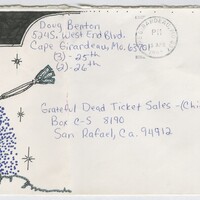 Doug Benton
524 S. West End Blvd.
Cape Girardeau, Mo. 63701
(3) - 25th
(2) - 26th
GIRARDEAU
PM
Grateful Dead Ticket Sales - (Chi
Box C-S 8190
San Rafael, Ca. 94912